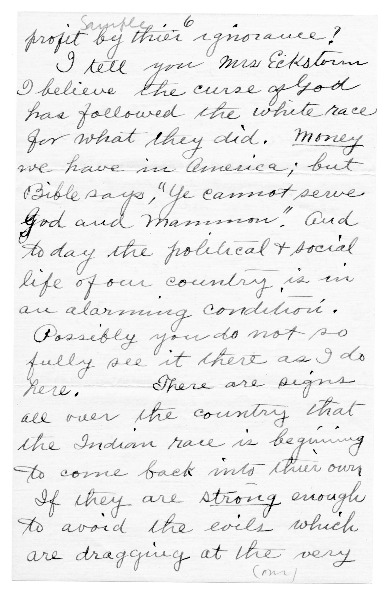 Sample 6
profit by thier ignorance?
I tell you Mrs Eckstorm
I believe the curse of God
has followed the white race
for what they did. Money
we have in America; but
Bible says, "Ye cannot serve
God and Mammon". And
today the political & social
life of our country is in
an alarming condition.
Possibly you do not so
fully see it there as I do
here. There are signs
all over the country that
the Indian race is beginning
to come back into thier own
If they are strong enough
to avoid the evils which
are dragging at the very